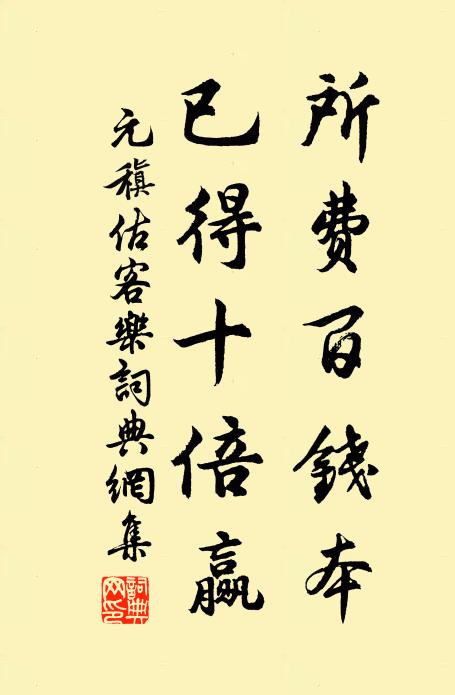 所费百錢本
已得十倍贏
元稹估客樂詞典網集
詞典網印